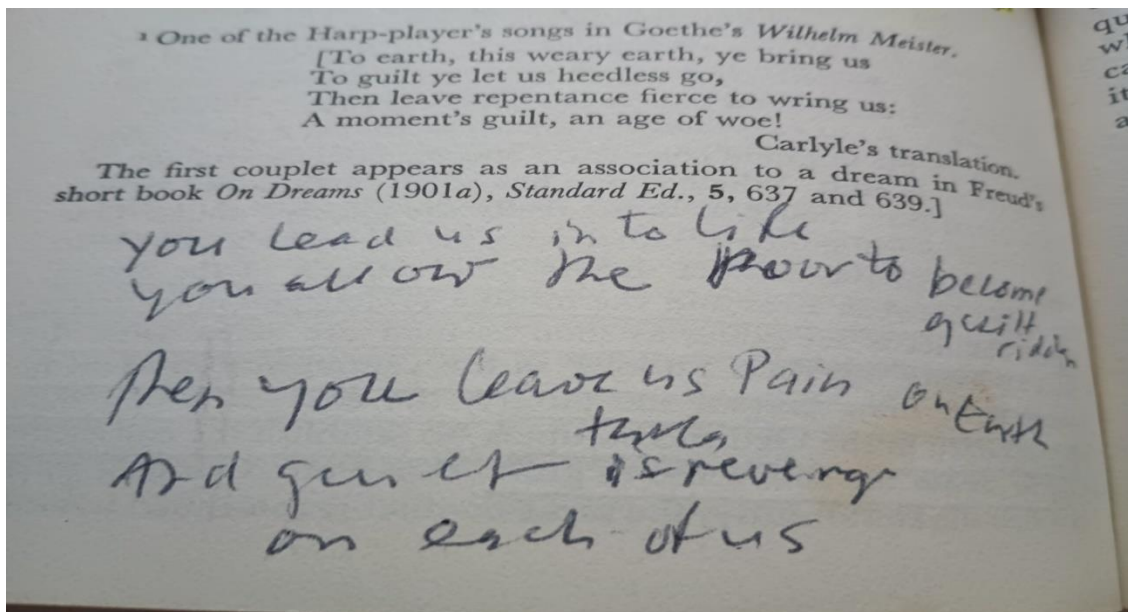 ¹ One of the Harp-player's songs in Goethe's Wilhelm Meister.
[To earth, this weary earth, ye bring us
To guilt ye let us heedless go,
Then leave repentance fierce to wring us:
A moment's guilt, an age of woe!
Carlyle's translation.
The first couplet appears as an association to a dream in Freud's
short book On Dreams (1901a), Standard Ed., 5, 637 and 639.]
you lead us into life
you allow the poor to become
guilt
ridden
Then you leave us Pain on Earth
And guilt is revenge
on each of us
qu
w
ca
it
a